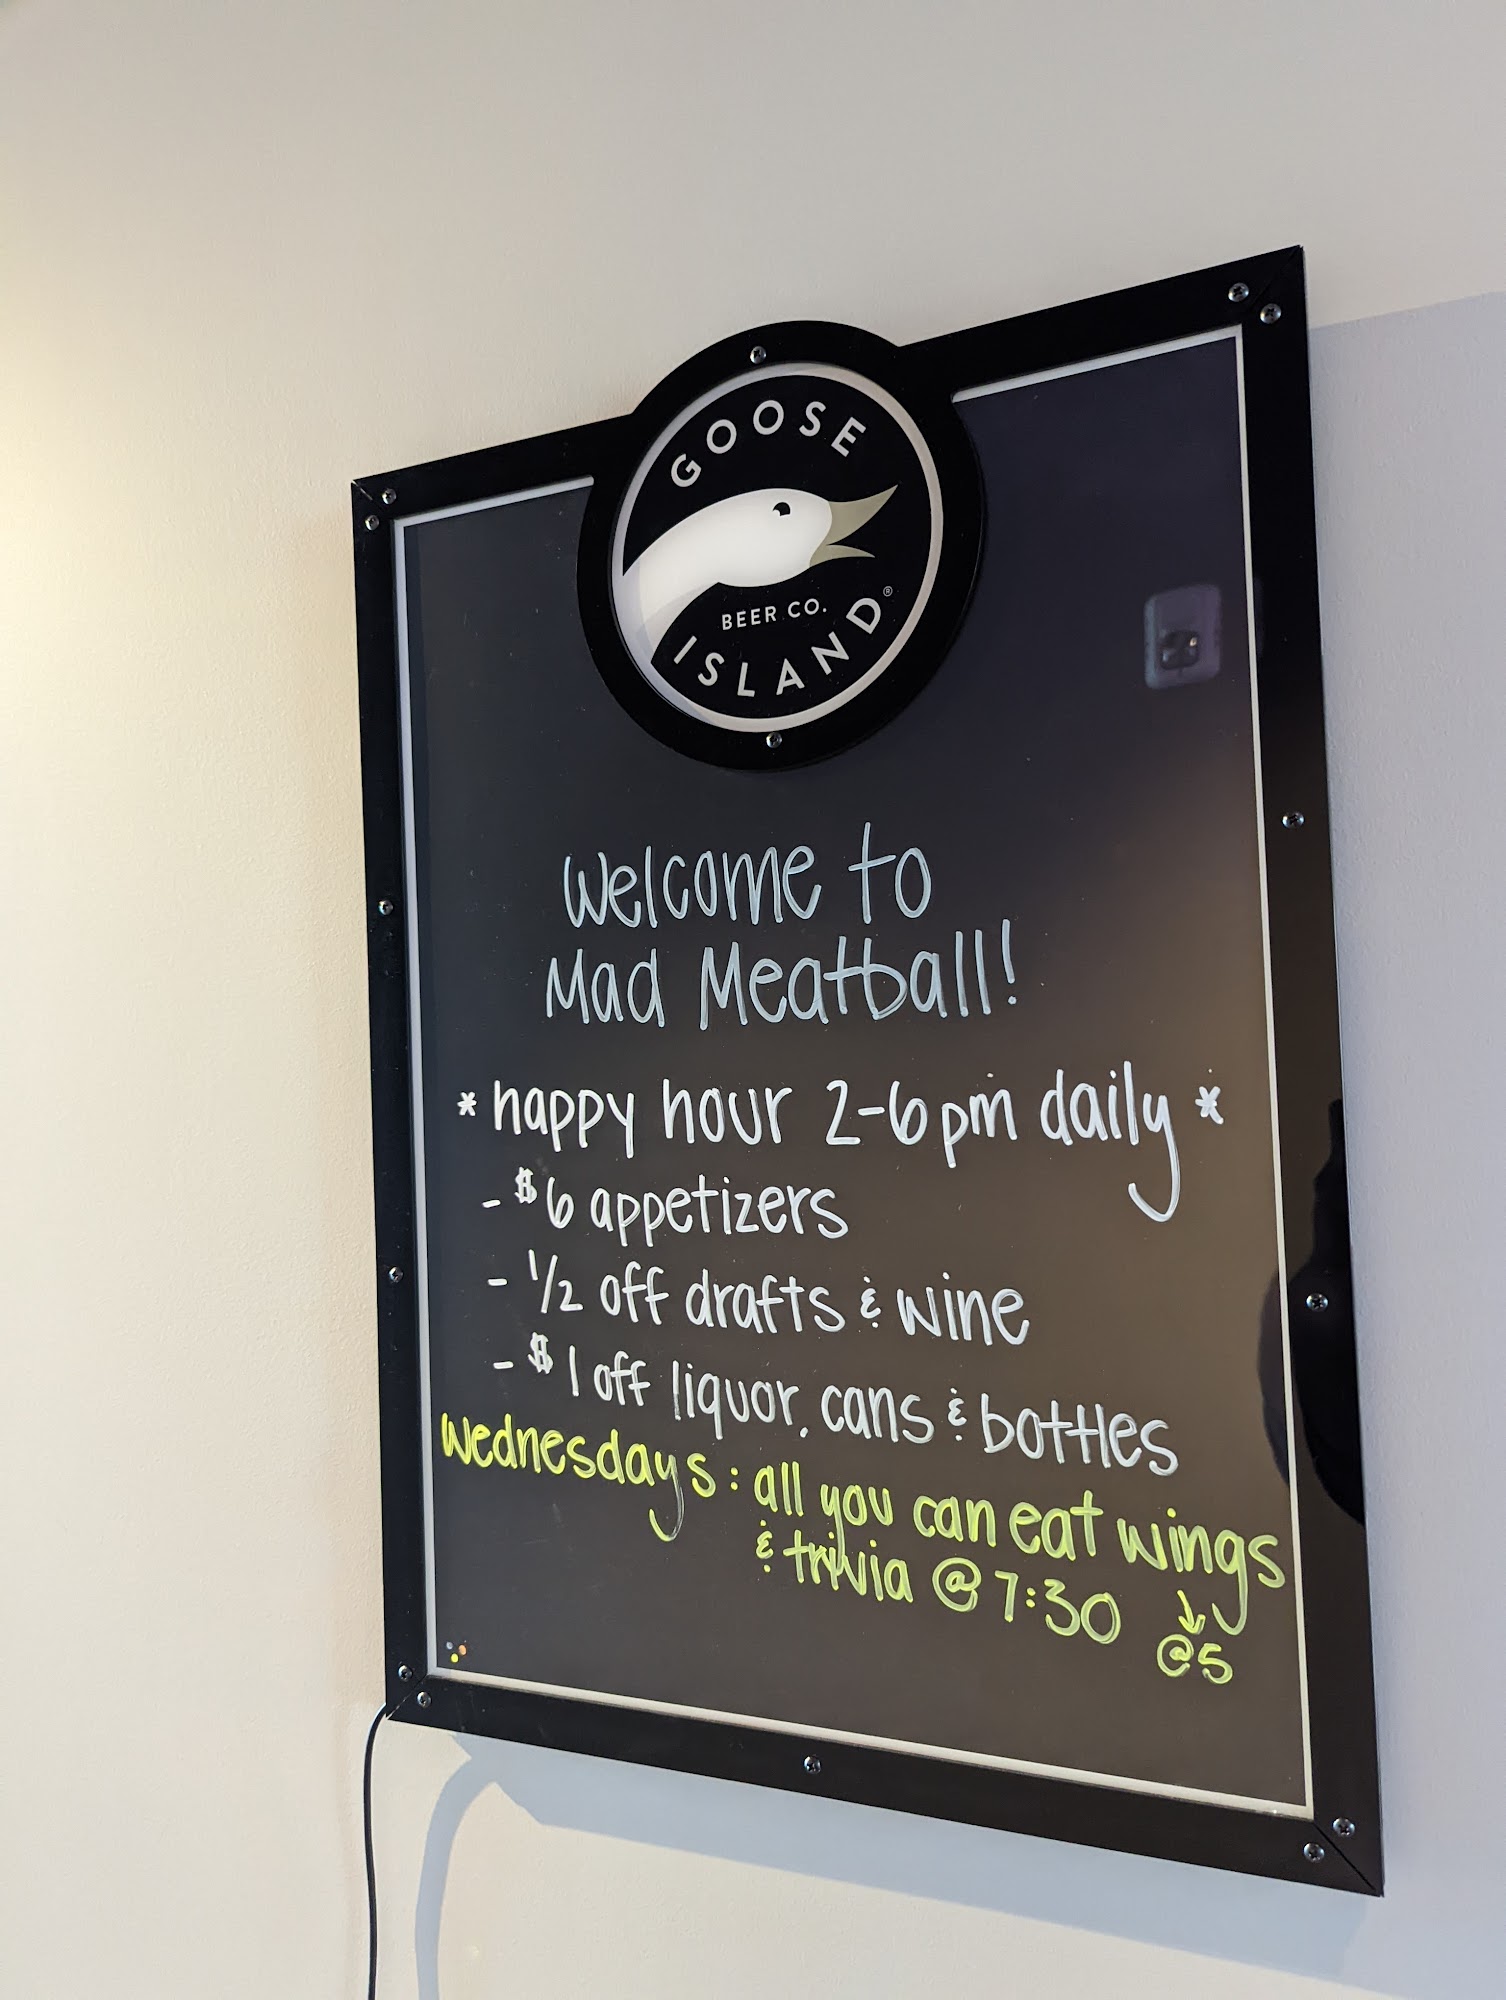 GOOSE
BEER CO.
ISLAND®
Welcome to
Mad Meatball!
* happy hour 2-6pm daily *
- $6 appetizers
- 1/2 off drafts & wine
- $1 off liquor, cans & bottles
Wednesdays: all you can eat wings
& trivia @ 7:30 ↓
@5